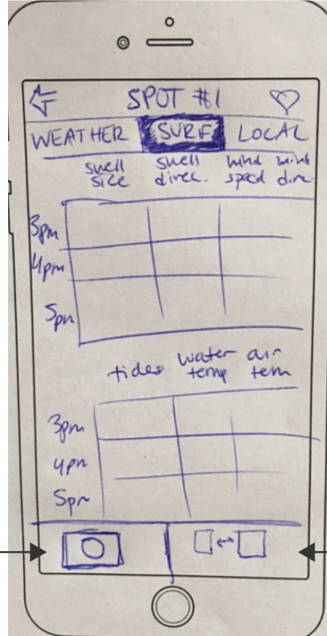 SPOT #1
WEATHER SURF LOCAL
swell size swell direc. wind speed wind dire.
3pm
4pm
5pm
tides water temp air tem
3pm
4pm
5pm